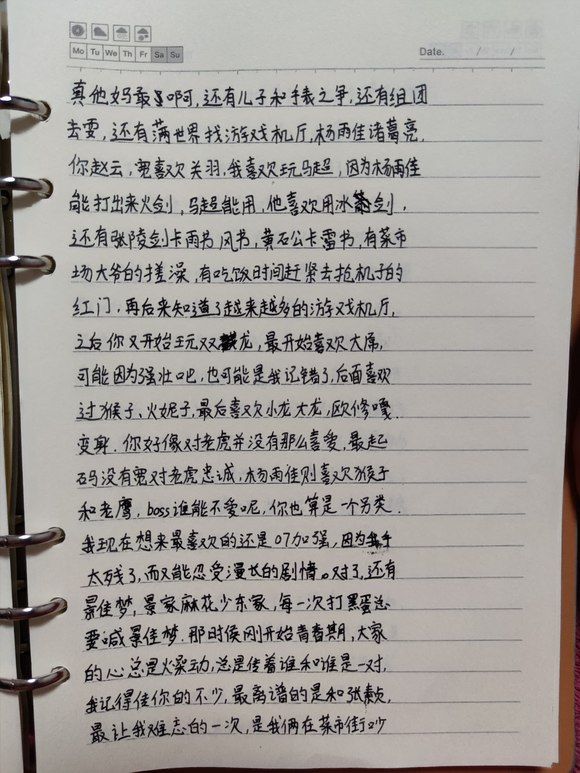 Mo Tu We Th Fr Sa Su
Date. / /
真他妈敢了啊，还有儿子和手表之争，还有组团
去耍，还有满世界找游戏机厅，杨雨佳诸葛亮，
你赵云，宽喜欢关羽，我喜欢玩马超，因为杨雨佳
能打出来火剑，马超能用，他喜欢用冰剑，
还有张陵剑卡雨书风书，黄石公卡雷书，有菜市
场大爷的搓澡，有吃饭时间赶紧去抢机子的
红门，再后来知道了越来越多的游戏机厅，
之后你又开始玩双截龙，最开始喜欢大席，
可能因为强壮吧，也可能是我记错了，后面喜欢
过猴子、火妮子，最后喜欢小龙大龙，欧修嘎，
变身，你好像对老虎并没有那么喜爱，最起
码没有宽对老虎忠诚，杨雨佳则喜欢猴子
和老鹰，boss谁能不爱呢，你也算是一个另类，
我现在想来最喜欢的还是07加强，因为
太残了，而又能忍受漫长的剧情。对了，还有
景佳梦，景家麻花少东家，每一次打黑蛋总
要喊景佳梦，那时侯刚开始青春期，大家
的心总是燥动，总是传着谁和谁是一对，
我记得佳你的不少，最离谱的是和张贞，
最让我难忘的一次，是我俩在菜市街吵